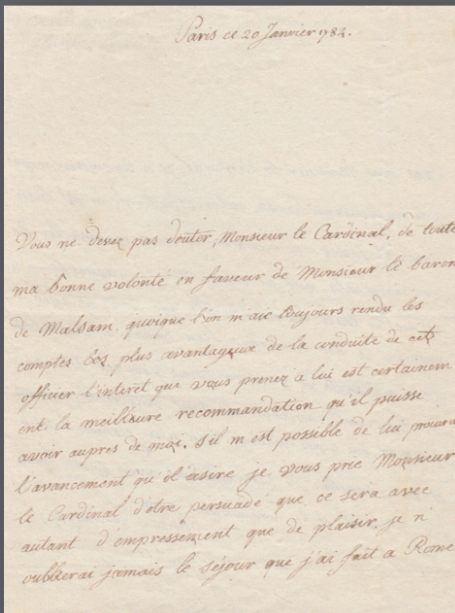 Paris ce 20 Janvier 1784.
Vous ne devez pas douter, Monsieur le Cardinal, de toute
ma bonne volonté en faveur de Monsieur le baron
de Malsam, quoique l'on m'aie toujours rendu les
comptes les plus avantageux de la conduite de cet
officier l'interet que vous prenez a lui est certainem
ent la meilleure recommandation qu'il puisse
avoir aupres de moi. S'il m est possible de lui procurer
l'avancement qu'il désire je vous prie Monsieur
le Cardinal d'etre persuadé que ce sera avec
autant d'empressement que de plaisir, je n'
oublierai jamais le séjour que j'ai fait a Rome